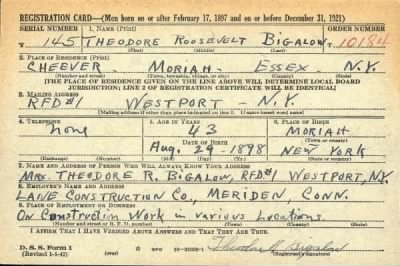 REGISTRATION CARD—(Men born on or after February 17, 1897 and on or before December 31, 1921)
SERIAL NUMBER 1. NAME (Print) ORDER NUMBER
T 145 THEODORE ROOSEVELT BIGALOW 10181
(First) (Middle) (Last)
2. PLACE OF RESIDENCE (Print)
CHEEVER MORIAH ESSEX N.Y.
(Number and street) (Town, township, village, or city) (County) (State)
[THE PLACE OF RESIDENCE GIVEN ON THE LINE ABOVE WILL DETERMINE LOCAL BOARD
JURISDICTION; LINE 2 OF REGISTRATION CERTIFICATE WILL BE IDENTICAL]
3. MAILING ADDRESS
RFD #1 WESTPORT - N.Y.
[Mailing address if other than place indicated on line 2. If same insert word same]
4. TELEPHONE 5. AGE IN YEARS 6. PLACE OF BIRTH
None 43 MORIAH
DATE OF BIRTH (Town or county)
Aug. 29 - 1898 NEW YORK
(Exchange) (Number) (Mo.) (Day) (Yr.) (State or country)
7. NAME AND ADDRESS OF PERSON WHO WILL ALWAYS KNOW YOUR ADDRESS
MRS. THEODORE R. BIGALOW, RFD#1 WESTPORT, N.Y.
8. EMPLOYER'S NAME AND ADDRESS
LANE CONSTRUCTION CO., MERIDEN, CONN.
9. PLACE OF EMPLOYMENT OR BUSINESS
On Construction Work in various Locations.
(Number and street or R. F. D. number) (Town) (County) (State)
I AFFIRM THAT I HAVE VERIFIED ABOVE ANSWERS AND THAT THEY ARE TRUE.
D. S. S. Form 1
(Revised 1-1-42) GPO Theodore R Bigalow
(Registrant's signature)